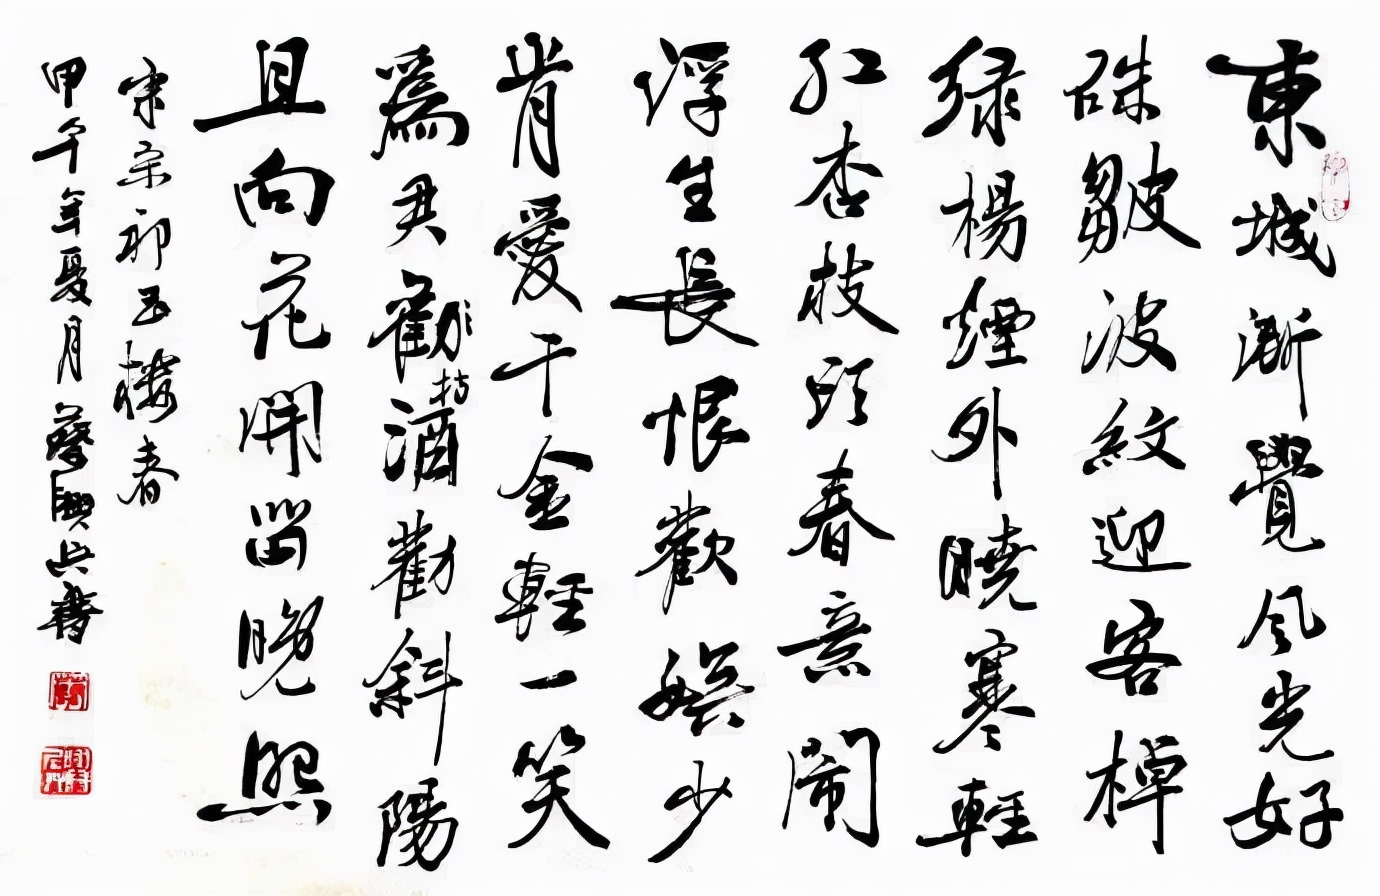 東城漸覺風光好
硃皺波紋迎客棹
绿楊煙外曉寒輕
红杏枝頭春意鬧
浮生長恨歡娱少
肯愛千金輕一笑
為君勸持酒勸斜陽
且向花開留晚照
宋宗祁玉樓春
甲午年夏月蔡興兵書